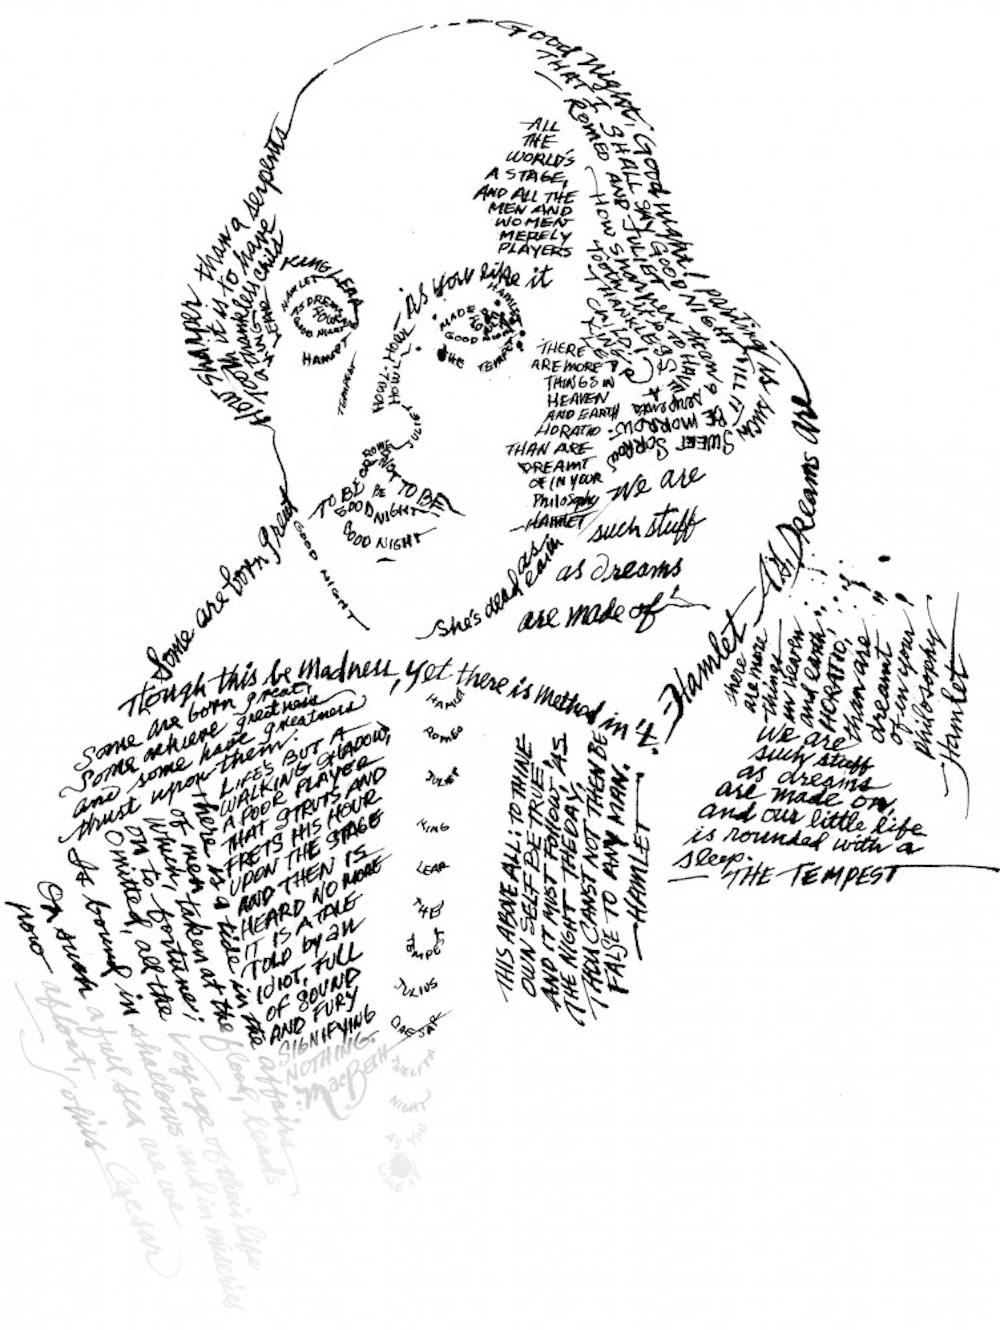 Good Night, Good night! parting
THAT I SHALL SAY GOOD NIGHT TILL IT
ROMEO AND JULIET
HOW SHARPER THAN A serpents
TOOTH
ALL
THE
WORLD'S
A STAGE,
AND ALL THE
MEN AND
WOMEN
MERELY
PLAYERS
As you like it
How Sharper than a serpents
tooth it is to have
a thankless child
KING LEAR
KING LEAR
HAMLET
AS DREAMS
GOOD NIGHT
HAMLET
TEMPEST
HOWL-HOWL
HOWL
MADE
GOOD
THE TEMPEST
JULIET
ROMEO
THERE
ARE MORE
THINGS IN
HEAVEN
AND EARTH
HORATIO
THAN ARE
DREAMT
OF IN YOUR
Philosophy
-HAMLET
SWEET SORROW
BE MORROW.
is such
TO BE OR NOT TO BE
BE
GOOD NIGHT
GOOD NIGHT
GOOD NIGHT
She's dead as
earth
we are
such stuff
as dreams
are made of
Hamlet As Dreams are
Some are born great
Though this be madness, yet there is method in it.
Some are born great,
Some achieve greatness
and some have greatness
thrust upon them.
LIFE'S BUT A
WALKING SHADOW,
A POOR PLAYER
THAT STRUTS AND
FRETS HIS HOUR
UPON THE STAGE
AND THEN IS
HEARD NO MORE
IT IS A TALE
TOLD by an
IDIOT, FULL
OF SOUND
AND FURY
SIGNIFYING
NOTHING.
MacBETH
there is a tide in the affairs
of men taken at the flood, leads
on to fortune;
Omitted, all the voyage of their life
Is bound in shallows and in miseries
On such a full sea are we
now afloat, Julius Caesar
HAMLET
ROMEO
JULIET
KING
LEAR
THE
TEMPEST
JULIUS
CAESAR
TWELFTH
NIGHT
AS YOU
LIKE
THIS ABOVE ALL: TO THINE
OWN SELF BE TRUE,
AND IT MUST FOLLOW, AS
THE NIGHT THE DAY,
THOU CANST NOT THEN BE
FALSE TO ANY MAN.
-HAMLET
there
are more
things
in heaven
and earth
HORATIO,
than are
dreamt
of in your
philosophy
-Hamlet
We are
such stuff
as dreams
are made on,
and our little life
is rounded with a
sleep.
-THE TEMPEST